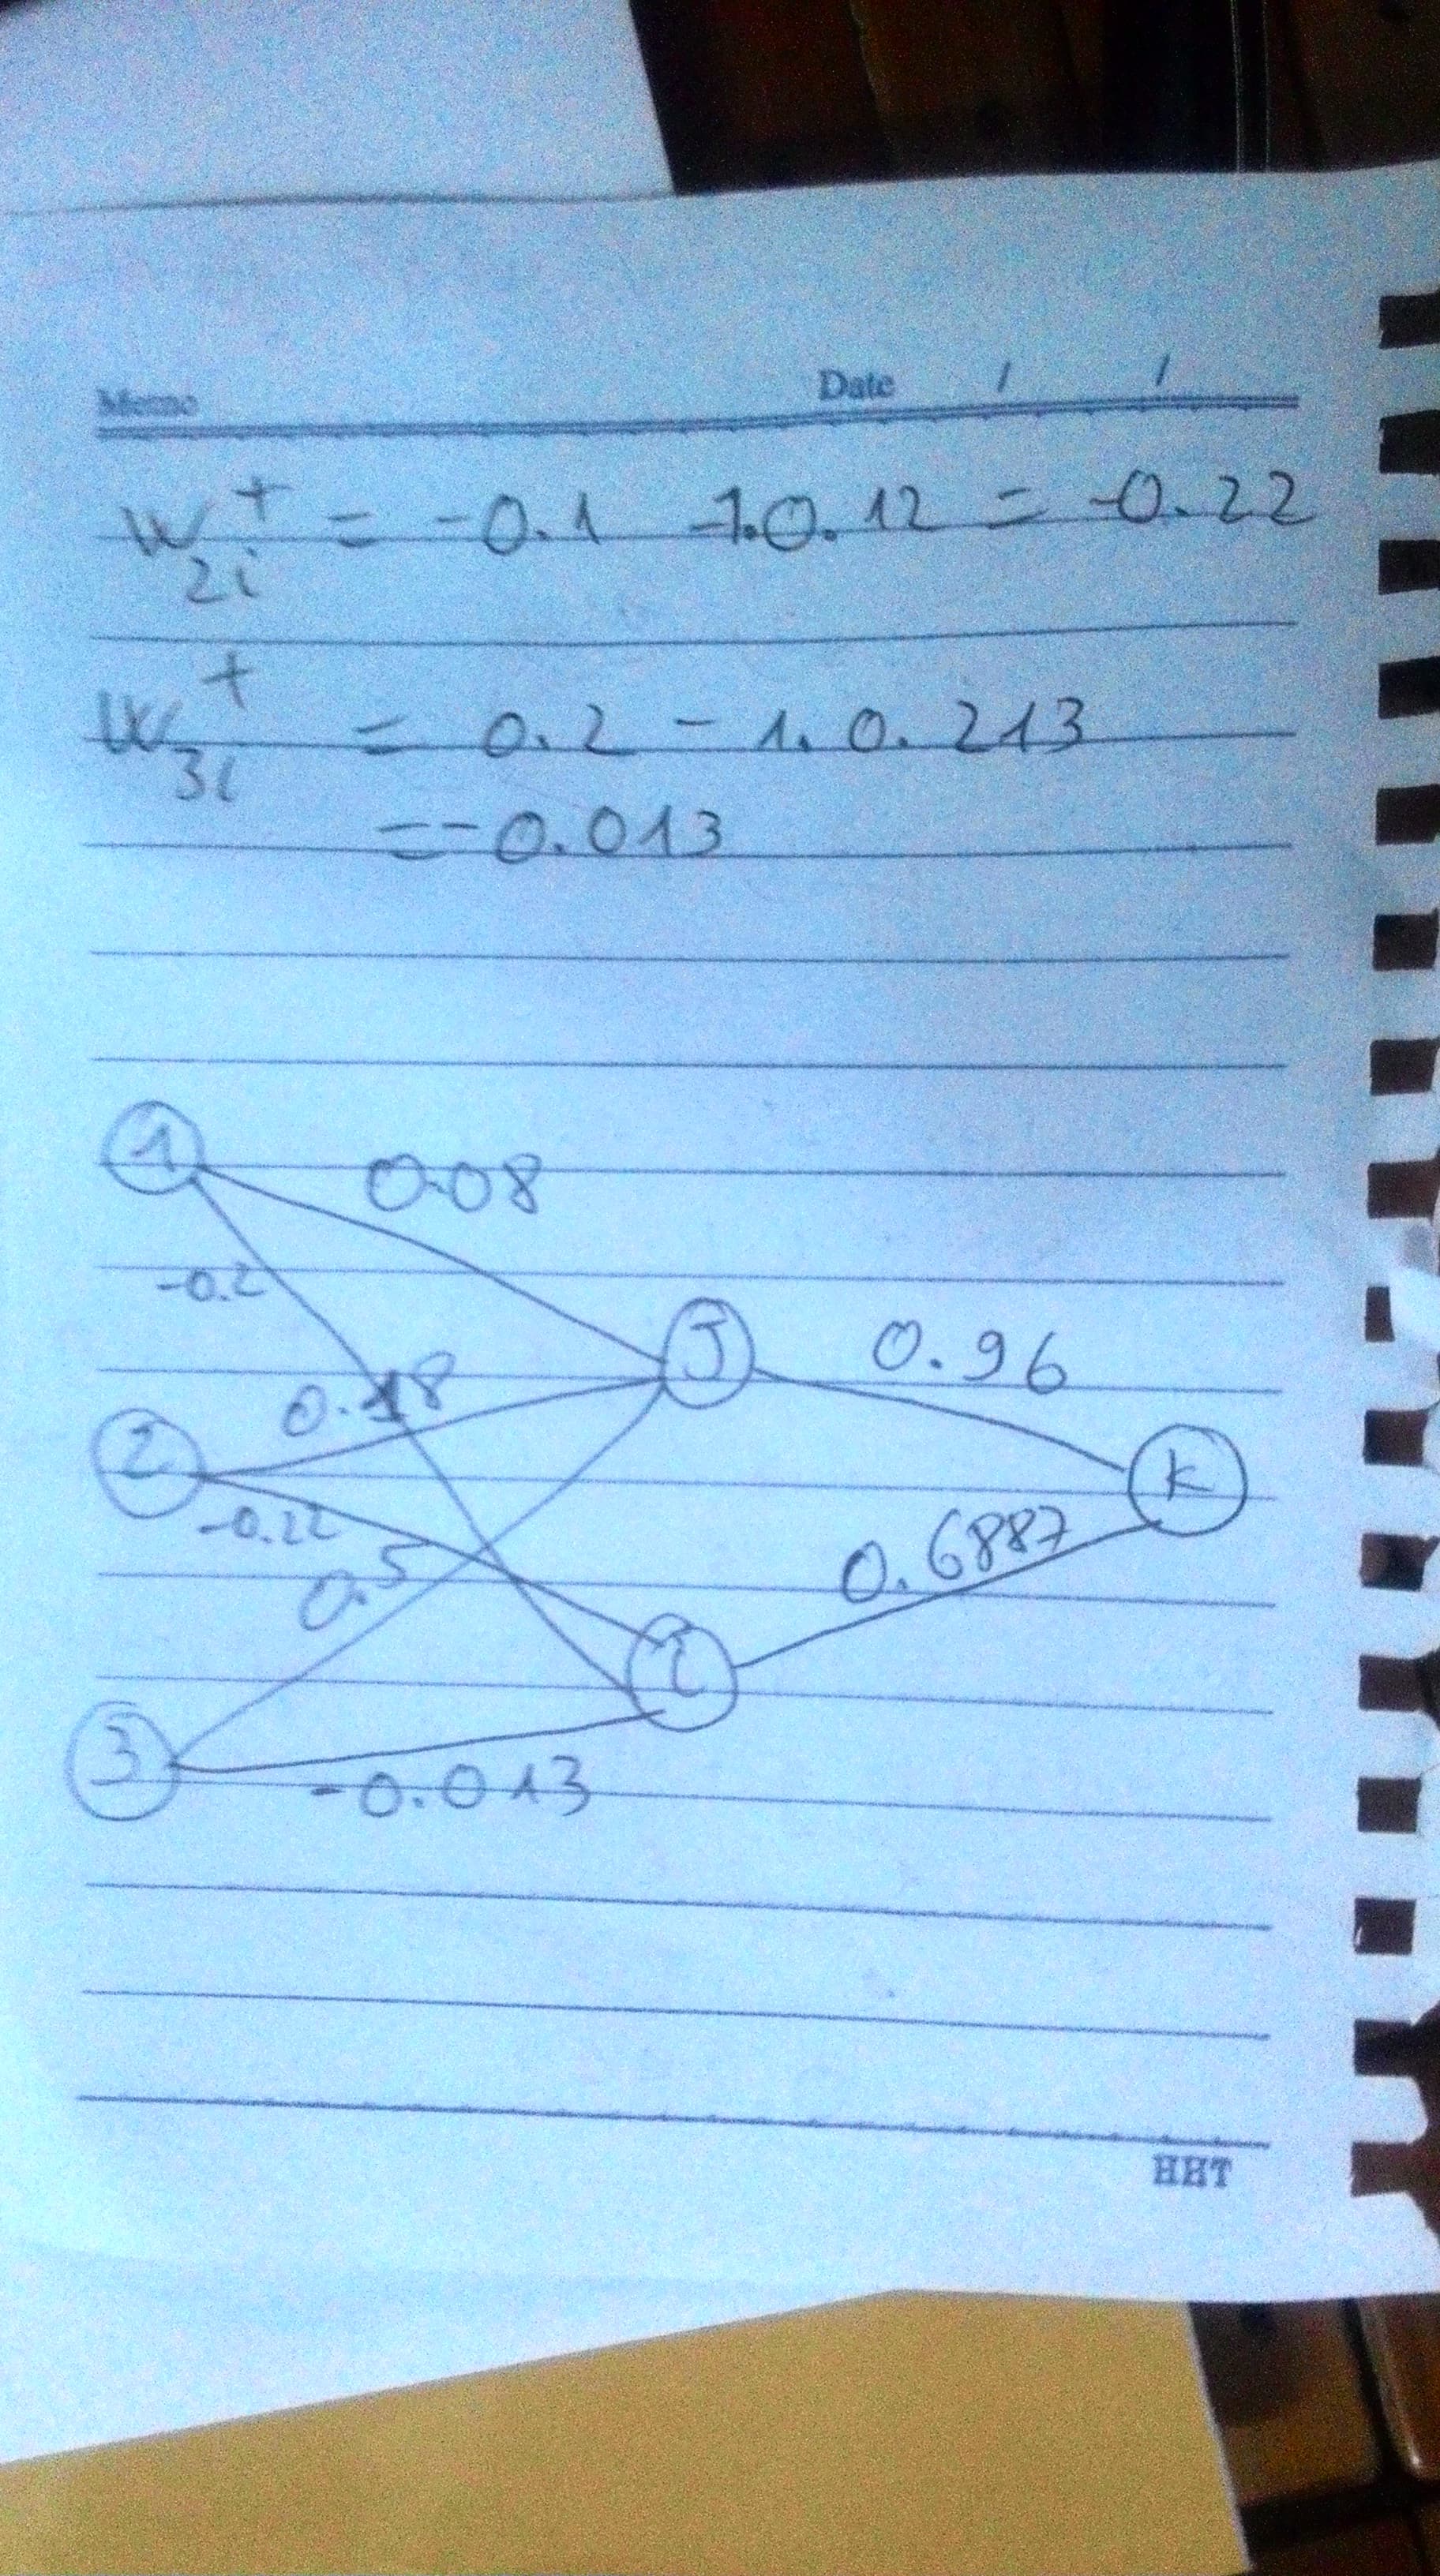 Memo Date / /
w₂ᵢ⁺ = -0.1 -1.0.12 = -0.22
w₃ᵢ⁺ = 0.2 - 1.0.213
= -0.013
1
0.08
-0.2
J
0.96
0.18
2
K
-0.22
0.6887
0.5
i
3
-0.013
HHT